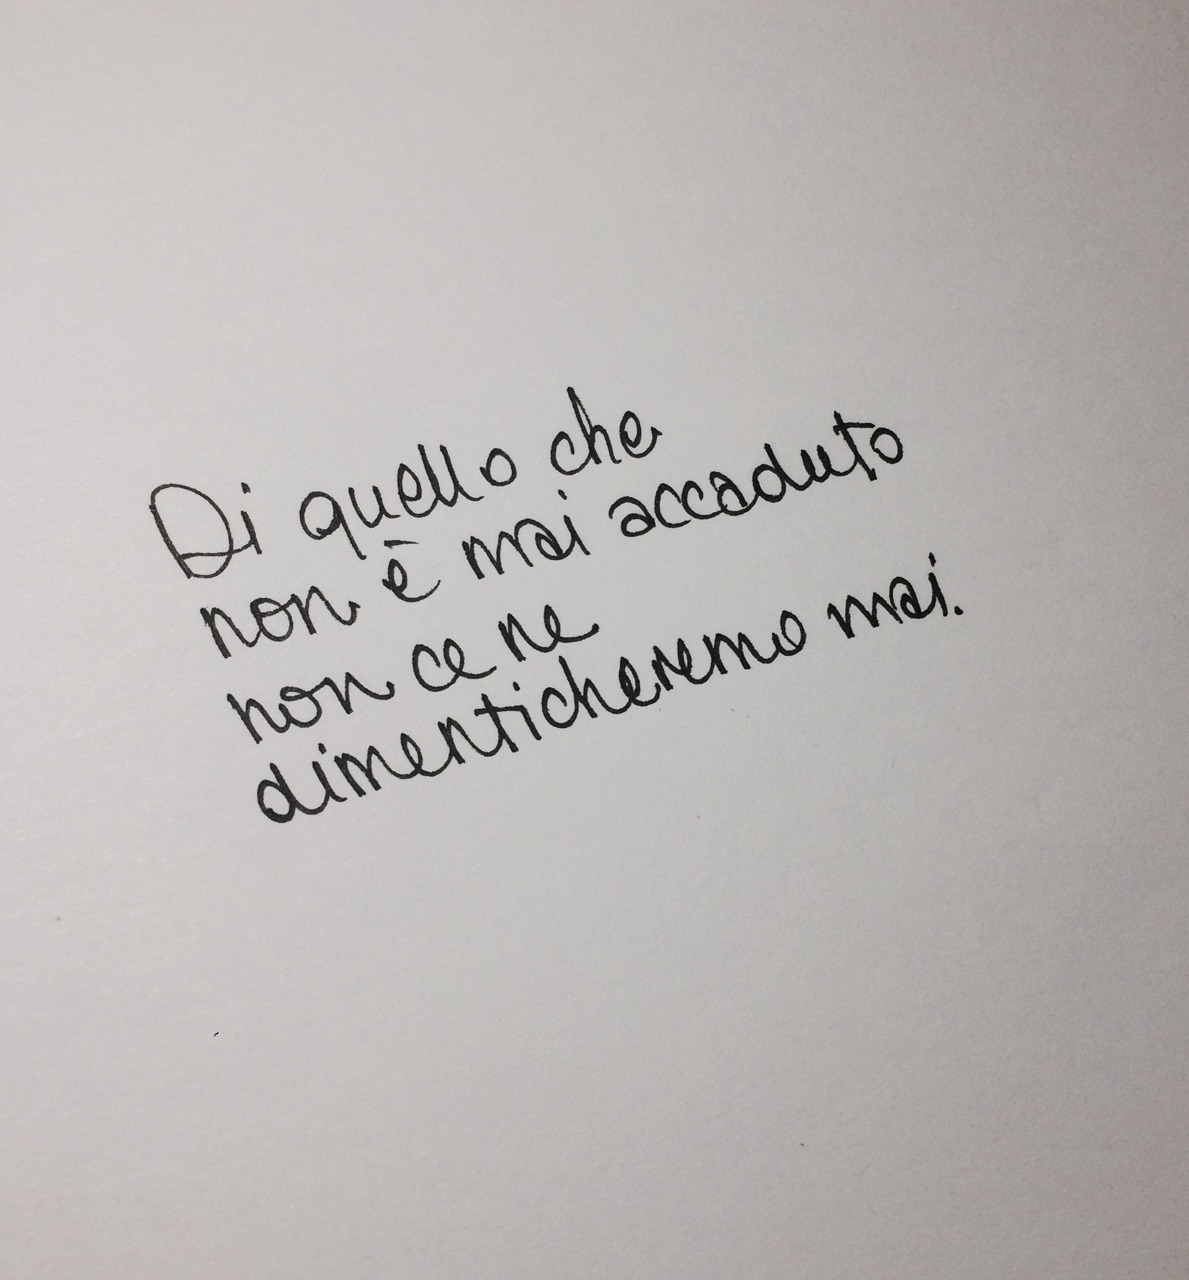 Di quello che
non è mai accaduto
non ce ne
dimenticheremo mai.